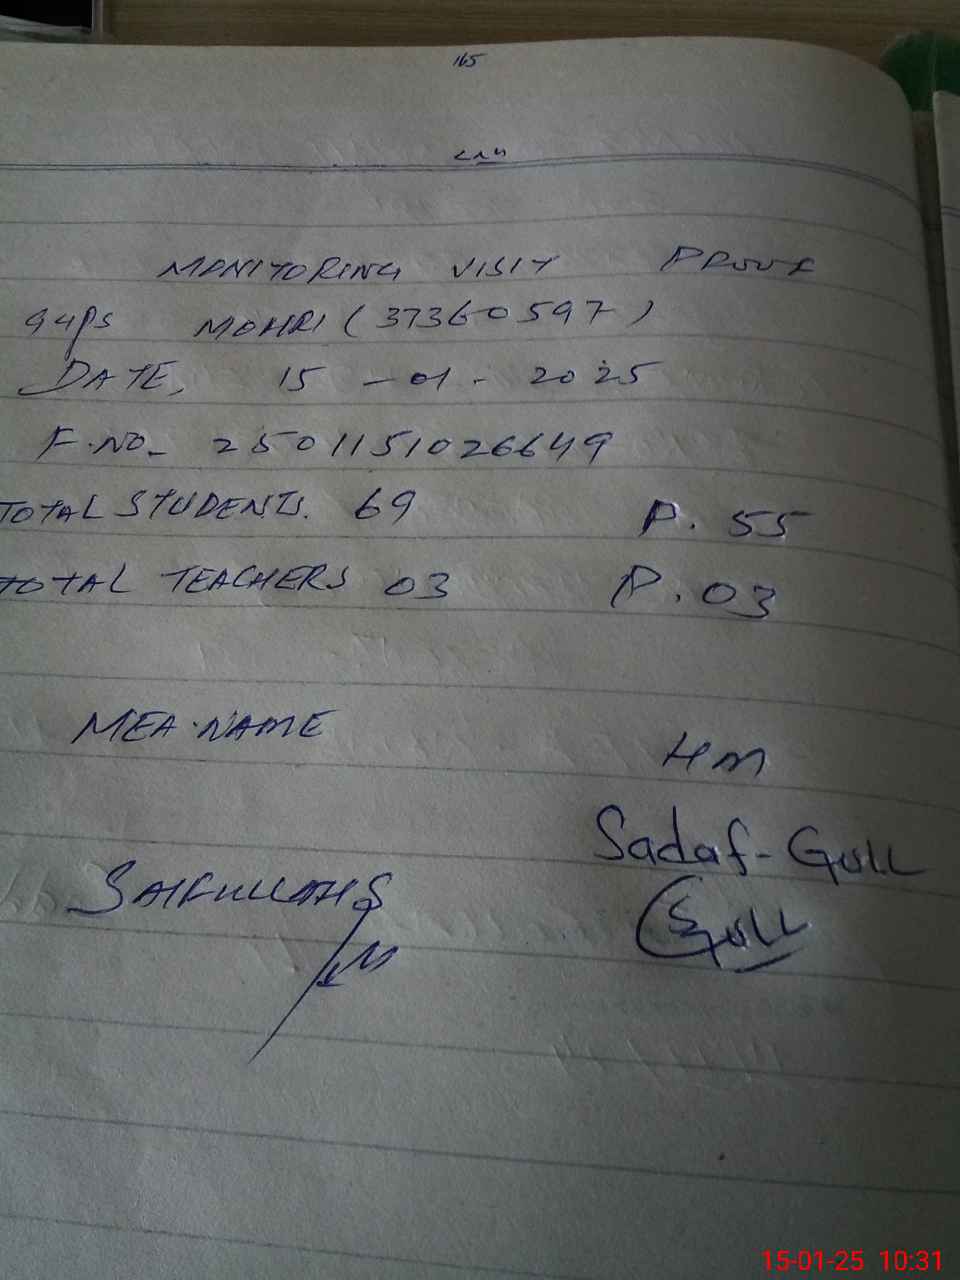 165
MONITORING VISIT PROOF
GGPS MOHRI (37360597)
DATE, 15 - 01 - 2025
F.NO- 2501151026649
TOTAL STUDENTS. 69 P. 55
TOTAL TEACHERS 03 P. 03
MEA.NAME
HM
Sadaf-Gull
SAIFULLAH
Gull
15-01-25 10:31